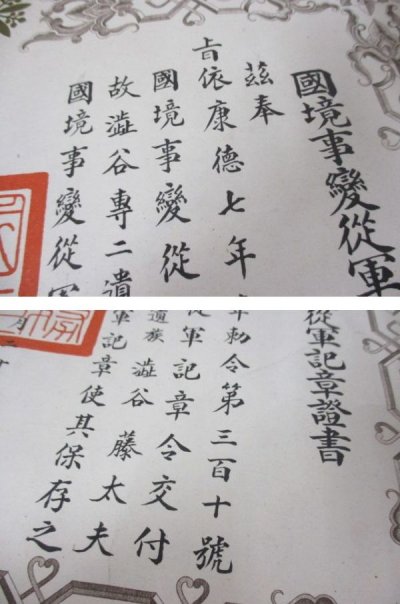 國境事變從軍
茲奉
旨依康德七年
國境事變從
故澁谷專二遺
國境事變從軍
從軍記章證書
年勅令第三百十號
從軍記章令交付
遺族澁谷藤太夫
軍記章使其保存之
月二十